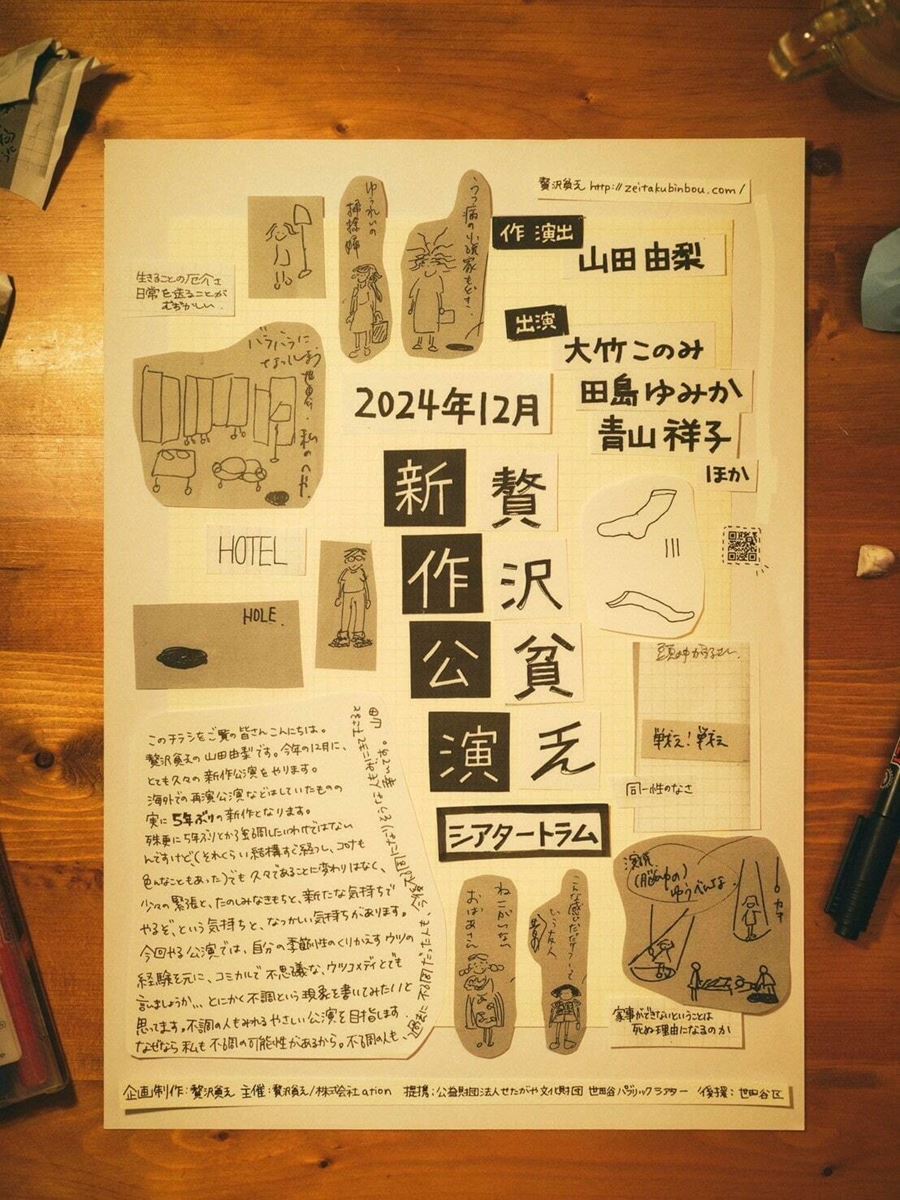 贅沢貧乏 http://zeitakubinbou.com/
作 演出
山田由梨
出演
大竹このみ
田島ゆみか
青山祥子
ほか
生きることの厄介さ
日常を送ることが
むずかしい.
ゆうれいの
掃除婦
うつ病の小説家もどき.
バラバラに
なってしまう
世界・私のへや.
2024年12月
新作公演
贅沢貧乏
シアタートラム
HOTEL
HOLE.
頭の中がうるさい.
戦え!戦え
同一性のなさ
このチラシをご覧の皆さんこんにちは。
贅沢貧乏の山田由梨です。今年の12月に、
とても久々の新作公演をやります。
海外での再演公演などはしていたものの
実に5年ぶりの新作となります。
殊更に5年ぶりとかを強調したいわけではない
んですけど(それくらい結構すぐ経つし、コロナも
色んなこともあった)でも久々であることに変わりはなく、
少々の緊張と、たのしみなきもちと、新たな気持ちで
やるぞ、という気持ちと、なつかしい気持ちがあります。
今回やる公演では、自分の季節性のくりかえすウツの
経験を元に、コミカルで不思議な、ウツコメディとでも
言いましょうか、、とにかく不調という現象を書いてみたいと
思ってます。不調の人もみれるやさしい公演を目指します
なぜなら私も不調の可能性があるから。不調の人も、
過去に不調だった人も、
山田
ねこがいない
おばあさん
こんな感じだだけっていう
友人
演説
(脳の中の)
ゆうべんな
家事ができないということは
死ぬ理由になるのか
企画制作:贅沢貧乏 主催:贅沢貧乏/株式会社ation 提携:公益財団法人せたがや文化財団 世田谷パブリックシアター 後援:世田谷区